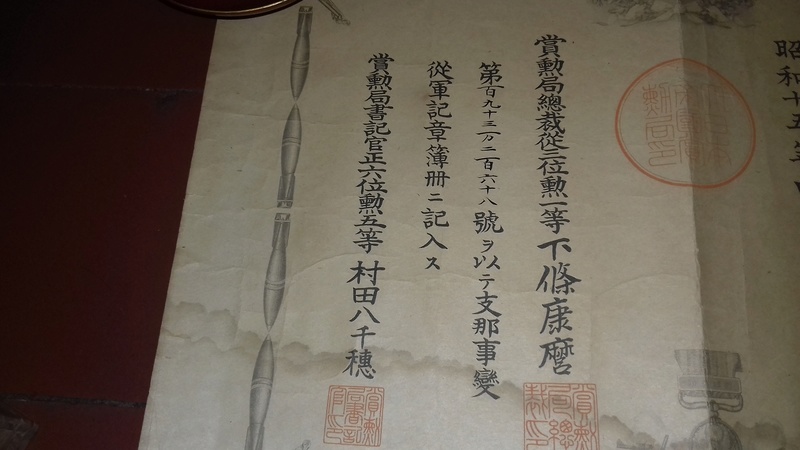 昭和十五年
賞勲局總裁從三位勲一等下條康麿
第百九十三万二百六十八號ヲ以テ支那事變
從軍記章簿冊ニ記入ス
賞勲局書記官正六位勲五等村田八千穗
賞勲局總裁印
賞勲局書記官印